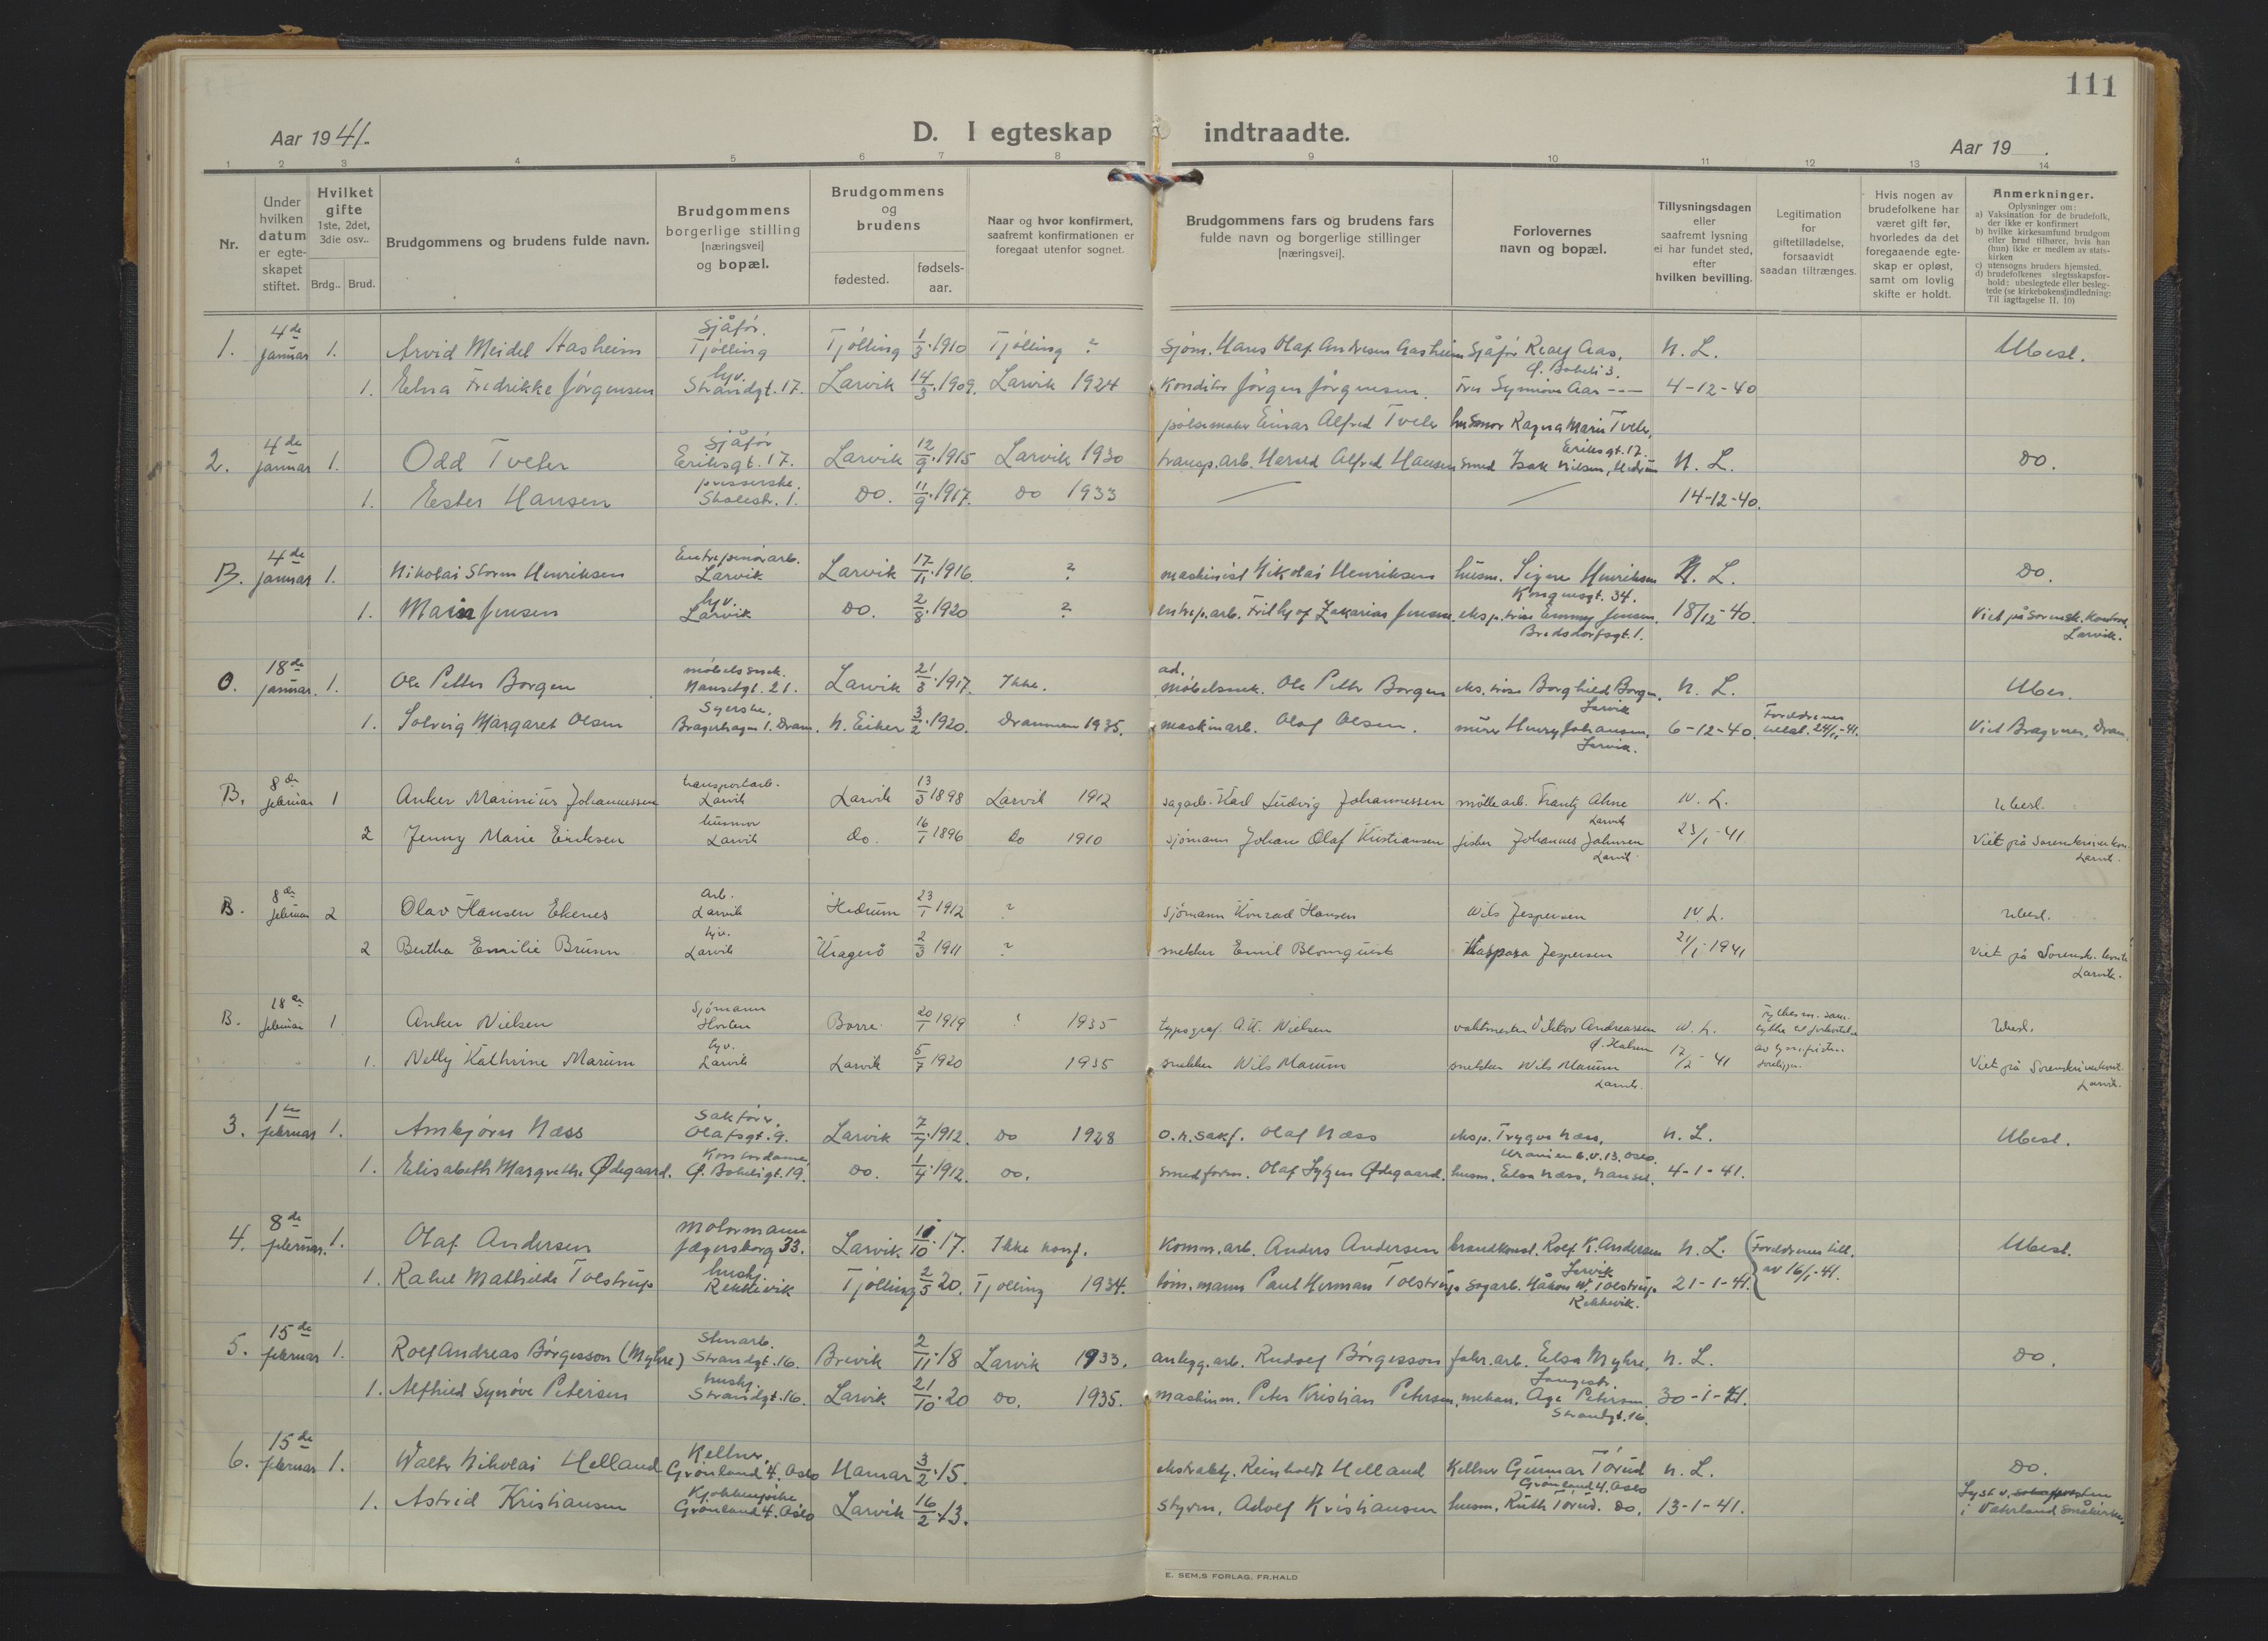 111
Aar 1941.
D. I egteskap indtraadte.
Aar 19 .
1 2 3 4 5 6 7 8 9 10 11 12 13 14
Nr.
Under hvilken datum er egteskapet stiftet.
Hvilket gifte 1ste, 2det, 3die osv..
Brdg.. Brud.
Brudgommens og brudens fulde navn.
Brudgommens borgerlige stilling [næringsvei] og bopæl.
Brudgommens og brudens
fødested.
fødselsaar.
Naar og hvor konfirmert, saafremt konfirmationen er foregaat utenfor sognet.
Brudgommens fars og brudens fars fulde navn og borgerlige stillinger [næringsvei].
Forlovernes navn og bopæl.
Tillysningsdagen eller saafremt lysning ei har fundet sted, efter hvilken bevilling.
Legitimation for giftetilladelse, forsaavidt saadan tiltrænges.
Hvis nogen av brudefolkene har været gift før, hvorledes da det foregaaende egteskap er opløst, samt om lovlig skifte er holdt.
Anmerkninger.
Oplysninger om:
a) Vaksination for de brudefolk, der ikke er konfirmert
b) hvilke kirkesamfund brudgom eller brud tilhører, hvis han (hun) ikke er medlem av statskirken
c) utensogns bruders hjemsted.
d) brudefolkenes slegtsskapsforhold: ubeslegtede eller beslegtede (se kirkebokens indledning: Til iagttagelse II. 10)
1. 4de januar 1. Arvid Meidel Aasheim Sjåfør. Tjølling Tjølling 1/3.1910 Tjølling ? Sjøm. Hans Olaf Andresen Aasheim Sjåfør Rolf Aas, Ø. Bøkeli 3. N. L. Ubesl.
1. Edna Fredrikke Jørgensen hv. Strandgt. 17. Larvik 14/3.1909. Larvik 1924 Konditor Jørgen Jørgensen. Fru Synnøve Aas --- 4-12-40
2. 4de januar 1. Odd Tveter Sjåfør Eriksgt. 17. Larvik 12/9.1915 Larvik 1930 pølsemaker Einar Alfred Tveter husmor Ragna Marie Tveter, Eriksgt. 17. N. L. Do.
1. Ester Hansen presserske. Skolestr. 1. Do. 11/9.1917. Do 1933 transp.arb. Harald Alfred Hansen smed Isak Nilsen, Hedrum 14-12-40.
B. 4de januar 1. Nikolai Storm Henriksen Entreprenørarb. Larvik Larvik 17/11.1916. ? maskinist Nikolai Henriksen husm. Signe Henriksen Kongensgt. 34. N. L. Do.
1. Marie Jensen hv. Larvik Do. 2/8.1920 ? entrep.arb. Frithjof Zakarias Jensen. eksp.trise Emmy Jensen. Bredsdorfsgt. 1. 18/12-40. Viet på Sorensk. Kontoret Larvik.
O. 18de januar. 1. Ole Petter Borgen møbelsnek. Nansetgt. 21. Larvik 21/3.1917. Ikke. ad. møbelsnek. Ole Petter Borgen eks.trise Borghild Borgen. Larvik N. L. Ubes.
1. Solveig Margaret Olsen Syerske. Bragerhagen 1. Dram. N. Eiker 3/2.1920. Drammen 1935. maskinarb. Olaf Olsen. murer Henry Johansen, Larvik. 6-12-40. Foreldrenes tillat. 24/1-41. Viet Bragernes, Dram.
B. 8de februar 1 Anker Marinius Johannessen transportarb. Larvik Larvik 13/3 1898 Larvik 1912 sagarb. Karl Ludvig Johannessen møllearb. Frantz Ahne Larvik N. L. Ubesl.
2 Jenny Marie Eriksen husmor Larvik do. 16/1 1896 do 1910 sjømann Johan Olaf Kristiansen fisker Johannes Johnsen Larvik. 23/1-41 Viet på Sorenskriverkon. Larvik.
B. 8de februar 2 Olav Hansen Ekenes Arb. Larvik Hedrum 23/1 1912 ? sjømann Konrad Hansen Nils Jespersen N. L. Ubesl.
2 Bertha Emilie Brunn hv. Larvik Kragerø 2/3 1911 ? snekker Emil Blomquist Kaspara Jespersen 21/1-1941 Viet på Sorensk. kontor Larvik.
B. 18de februar 1 Anker Nielsen Sjømann Horten Borre 20/1 1919 ? 1935 typograf. A.K. Nielsen vaktmester Viktor Andreassen Ø. Halsen N. L. Ubesl.
1. Nelly Kathrine Marum hv. Larvik Larvik 5/7 1920 1935 snekker Nils Marum snekker Nils Marum Larvik. 17/2-41 Viet på Sorenskriverkont. Larvik.
3. 1ste februar 1. Arnbjørn Næss Sakfører. Olafsgt. 9. Larvik 7/7.1912. Do 1928 O.r.sakf. Olaf Næss eksp. Trygve Næss, Uranienb.v. 13. Oslo. N. L. Ubesl.
1. Elisabeth Margrethe Ødegaard. Kontordame, Ø. Bøkeligt. 19. Do. 1/4.1912. Do. smedform. Olaf Ødegaard. husm. Elsa Næss, Nanset. 4-1-41.
4. 8de februar. 1. Olaf Andersen Motormann Jegersborg 33. Larvik 10/10.17. Ikke konf. Komm.arb. Anders Andersen brandkonst. Rolf K. Andersen Larvik N. L. Foreldrenes till. av 16/1-41. Ubesl.
1. Rakel Mathilde Tolstrup hushj. Rekkevik Tjølling 2/5 20. Tjølling 1934. tøm.mann Paul Herman Tolstrup sagarb. Håkon W. Tolstrup Rekkevik. 21-1-41.
5. 15de februar 1. Rolf Andreas Börgesson (Myhre) Stenarb. Strandgt. 16. Brevik 2/11.18 Larvik 1933. anlegg.arb. Rudolf Börgesson fabr.arb. Elsa Myhre, Langestr. N. L. Do.
1. Alfhild Synöve Petersen hushj. Strandgt. 16. Larvik 21/10.20 Do. 1935. maskinm. Peter Kristian Petersen, mekan. Age Petersen Strandgt. 16. 30-1-41.
6. 15de februar 1. Walter Nikolai Helland Kellner, Grønland 4. Oslo Hamar 3/2.15. ekstrabetj. Reinholdt Helland Kellner Gunnar Tørud Grønland 4. Oslo N. L. Do.
1. Astrid Kristiansen Kjøkkenpike Grønland 4. Oslo Larvik 16/2.13. styrm. Adolf Kristiansen husm. Ruth Tørud. Do. 13-1-41. Lyst v. i Vaterland småkirke.
E. SEM,S FORLAG, FR.HALD